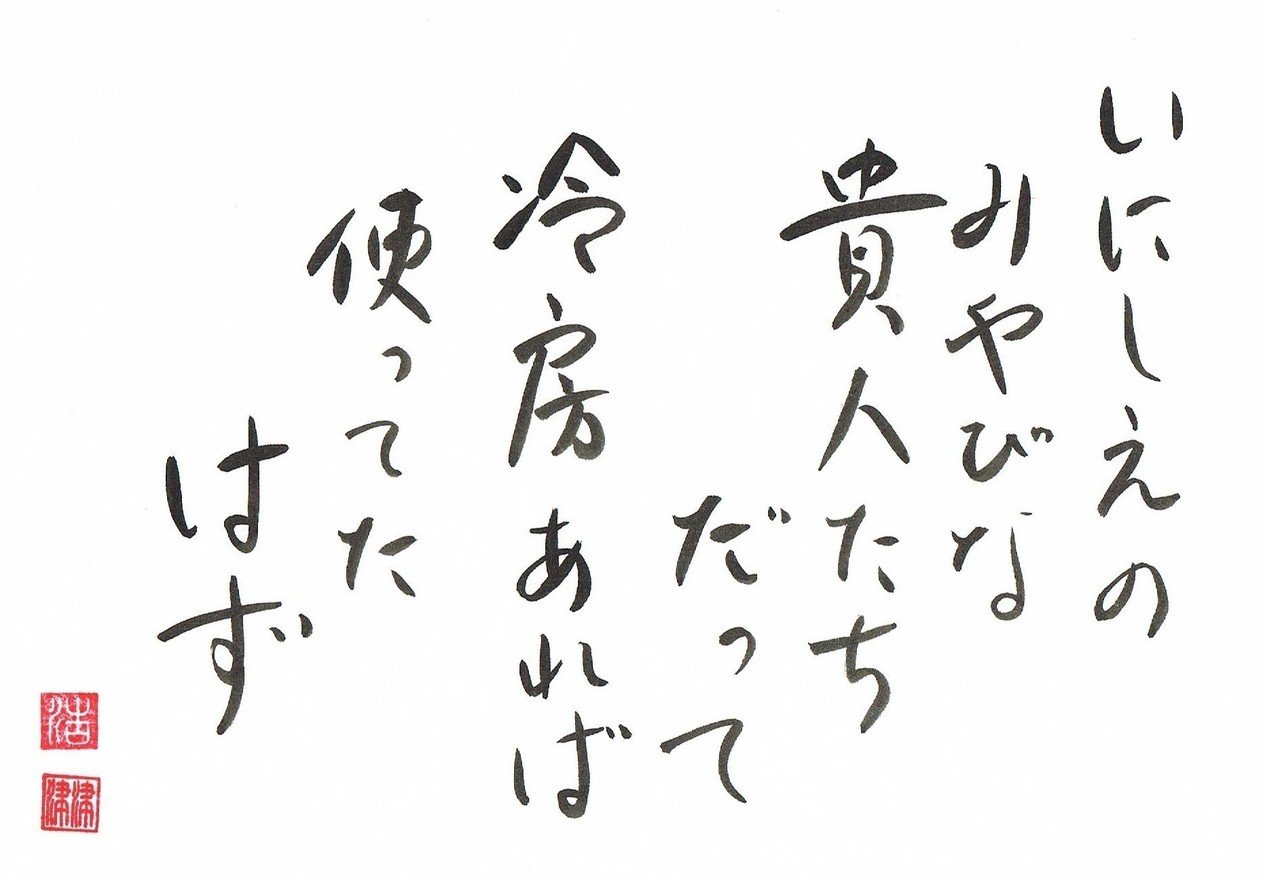 いにしえの
みやびな
貴人たち
だって
冷房あれば
使ってた
はず